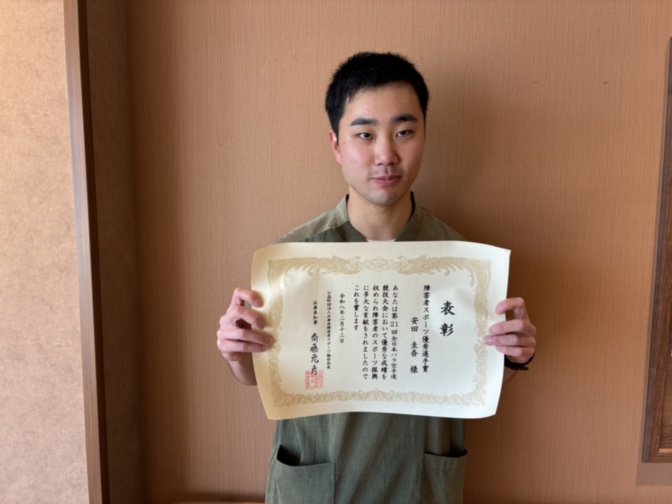 表彰
障害者スポーツ優秀選手賞
安田 圭吾 様
あなたは第21回全日本パラ空手道
競技大会において優秀な成績を
収められ障害者のスポーツ振興
に多大な貢献をされましたので
これを賞します
令和八年二月十三日
兵庫県知事 齋藤元彦